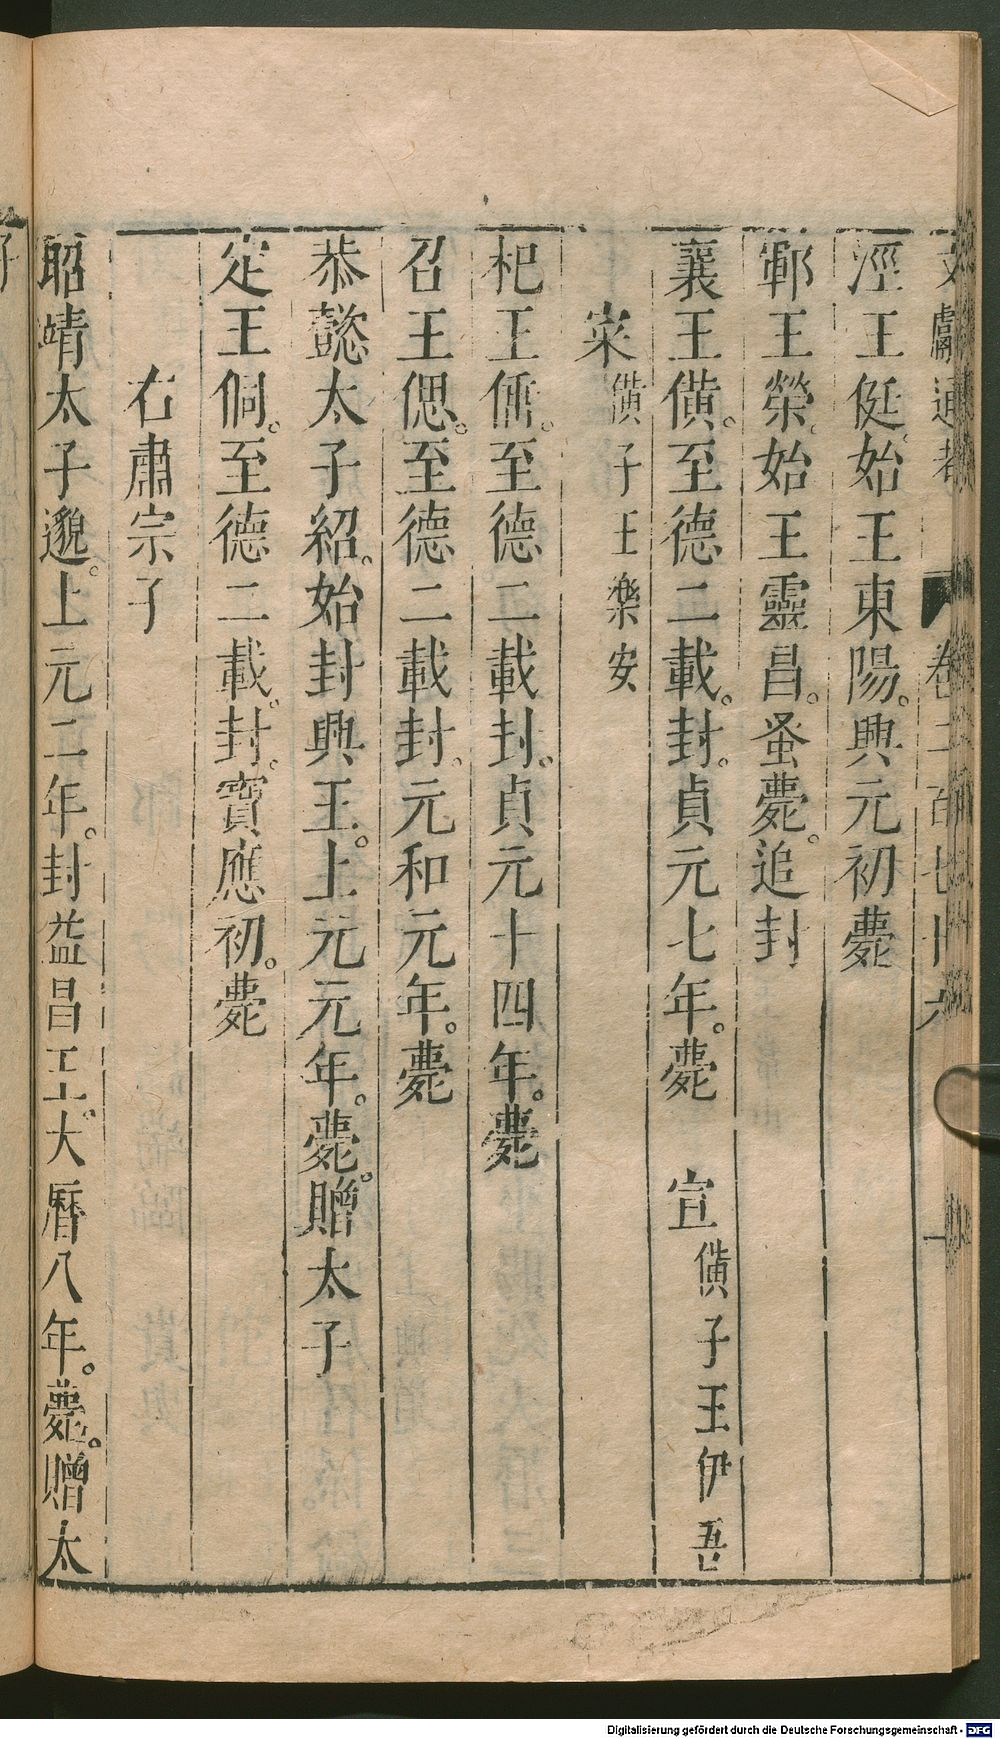 文獻通考 卷二百七十六 一
涇王侹。始王東陽。興元初薨
鄆王榮。始王靈昌。蚤薨。追封
襄王僙。至德二載。封。貞元七年。薨 宣 僙子王伊吾
寀 僙子王樂安
杞王倕。至德二載封。貞元十四年。薨
召王偲。至德二載封。元和元年。薨
恭懿太子紹。始封興王。上元元年。薨。贈太子
定王侗。至德二載。封。寶應初。薨
右肅宗子
昭靖太子邈。上元二年。封益昌王。大曆八年。薨。贈太
子
Digitalisierung gefördert durch die Deutsche Forschungsgemeinschaft - DFG